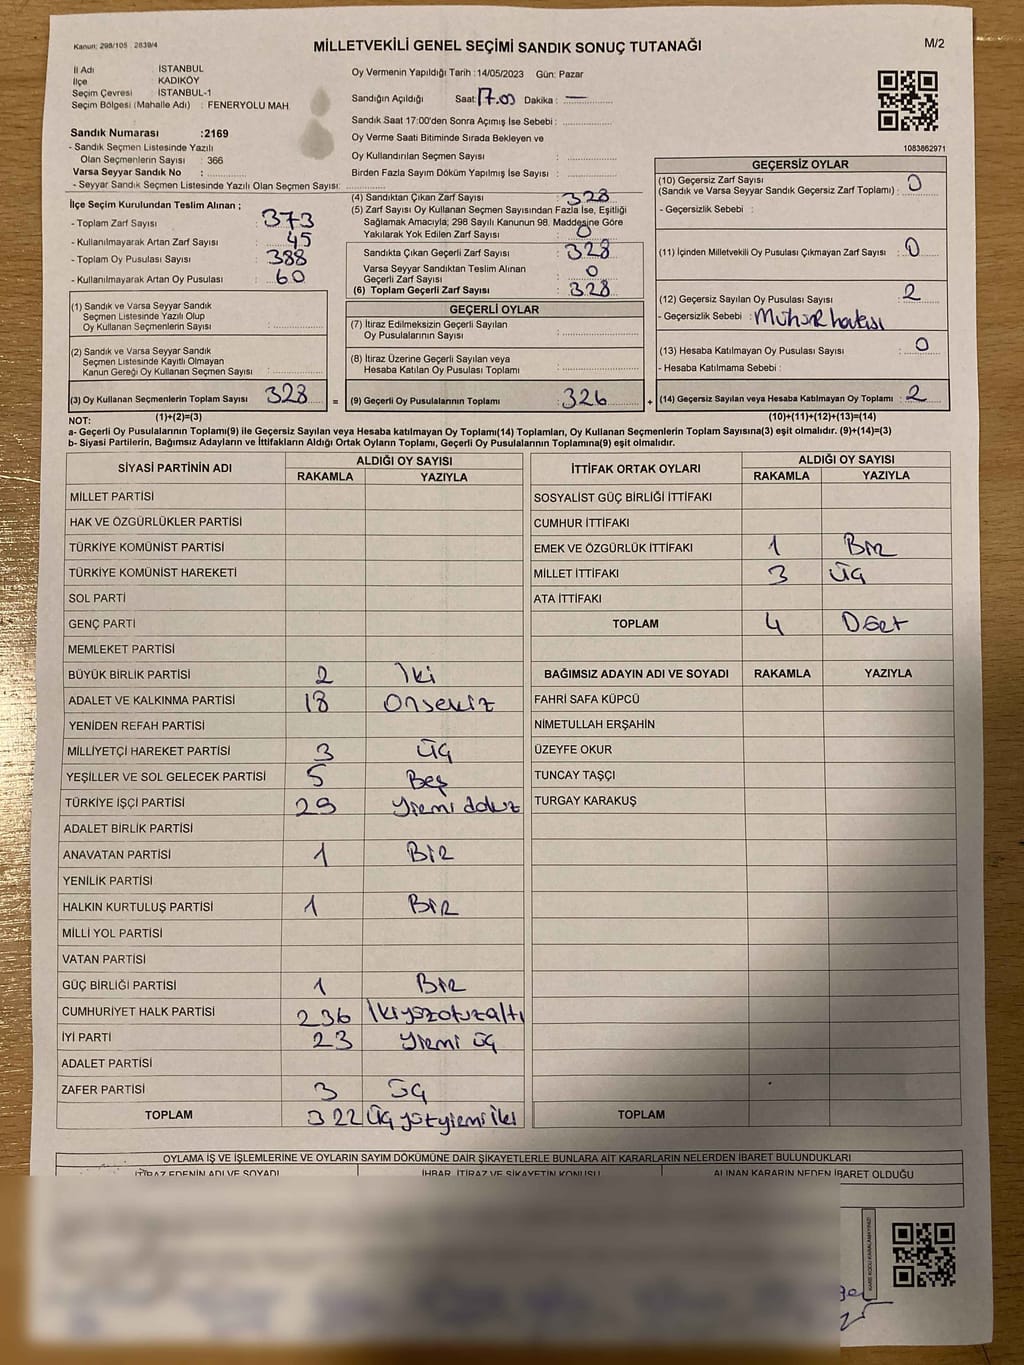 Kanun: 298/105 2839/4
MİLLETVEKİLİ GENEL SEÇİMİ SANDIK SONUÇ TUTANAĞI
M/2
İl Adı : İSTANBUL
İlçe : KADIKÖY
Seçim Çevresi : İSTANBUL-1
Seçim Bölgesi (Mahalle Adı) : FENERYOLU MAH
Sandık Numarası :2169
- Sandık Seçmen Listesinde Yazılı
Olan Seçmenlerin Sayısı : 366
Varsa Seyyar Sandık No :
- Seyyar Sandık Seçmen Listesinde Yazılı Olan Seçmen Sayısı:
Oy Vermenin Yapıldığı Tarih :14/05/2023 Gün: Pazar
Sandığın Açıldığı Saat: 17.00 Dakika : —
Sandık Saat 17:00'den Sonra Açımış İse Sebebi :
Oy Verme Saati Bitiminde Sırada Bekleyen ve
Oy Kullandırılan Seçmen Sayısı :
Birden Fazla Sayım Döküm Yapılmış İse Sayısı :
1083862971
İlçe Seçim Kurulundan Teslim Alınan ;
- Toplam Zarf Sayısı : 373
- Kullanılmayarak Artan Zarf Sayısı : 45
- Toplam Oy Pusulası Sayısı : 388
- Kullanılmayarak Artan Oy Pusulası : 60
(1) Sandık ve Varsa Seyyar Sandık
Seçmen Listesinde Yazılı Olup
Oy Kullanan Seçmenlerin Sayısı :
(2) Sandık ve Varsa Seyyar Sandık
Seçmen Listesinde Kayıtlı Olmayan
Kanun Gereği Oy Kullanan Seçmen Sayısı :
(3) Oy Kullanan Seçmenlerin Toplam Sayısı : 328 =
(1)+(2)=(3)
(4) Sandıktan Çıkan Zarf Sayısı : 328
(5) Zarf Sayısı Oy Kullanan Seçmen Sayısından Fazla İse, Eşitliği
Sağlamak Amacıyla; 298 Sayılı Kanunun 98. Maddesine Göre
Yakılarak Yok Edilen Zarf Sayısı : 0
Sandıkta Çıkan Geçerli Zarf Sayısı : 328
Varsa Seyyar Sandıktan Teslim Alınan
Geçerli Zarf Sayısı : 0
(6) Toplam Geçerli Zarf Sayısı : 328
GEÇERLİ OYLAR
(7) İtiraz Edilmeksizin Geçerli Sayılan
Oy Pusulalarının Sayısı :
(8) İtiraz Üzerine Geçerli Sayılan veya
Hesaba Katılan Oy Pusulası Toplamı :
(9) Geçerli Oy Pusulalarının Toplamı : 326 +
GEÇERSİZ OYLAR
(10) Geçersiz Zarf Sayısı
(Sandık ve Varsa Seyyar Sandık Geçersiz Zarf Toplamı) : 0
- Geçersizlik Sebebi :
(11) İçinden Milletvekili Oy Pusulası Çıkmayan Zarf Sayısı : 0
(12) Geçersiz Sayılan Oy Pusulası Sayısı : 2
- Geçersizlik Sebebi : Mühür hatası
(13) Hesaba Katılmayan Oy Pusulası Sayısı : 0
- Hesaba Katılmama Sebebi :
(14) Geçersiz Sayılan veya Hesaba Katılmayan Oy Toplamı : 2
(10)+(11)+(12)+(13)=(14)
NOT:
a- Geçerli Oy Pusulalarının Toplamı(9) ile Geçersiz Sayılan veya Hesaba katılmayan Oy Toplamı(14) Toplamları, Oy Kullanan Seçmenlerin Toplam Sayısına(3) eşit olmalıdır. (9)+(14)=(3)
b- Siyasi Partilerin, Bağımsız Adayların ve İttifakların Aldığı Ortak Oyların Toplamı, Geçerli Oy Pusulalarının Toplamına(9) eşit olmalıdır.
SİYASİ PARTİNİN ADI
ALDIĞI OY SAYISI
RAKAMLA YAZIYLA
MİLLET PARTİSİ
HAK VE ÖZGÜRLÜKLER PARTİSİ
TÜRKİYE KOMÜNİST PARTİSİ
TÜRKİYE KOMÜNİST HAREKETİ
SOL PARTİ
GENÇ PARTİ
MEMLEKET PARTİSİ
BÜYÜK BİRLİK PARTİSİ 2 İki
ADALET VE KALKINMA PARTİSİ 18 Onsekiz
YENİDEN REFAH PARTİSİ
MİLLİYETÇİ HAREKET PARTİSİ 3 Üç
YEŞİLLER VE SOL GELECEK PARTİSİ 5 Beş
TÜRKİYE İŞÇİ PARTİSİ 29 Yirmi dokuz
ADALET BİRLİK PARTİSİ
ANAVATAN PARTİSİ 1 BİR
YENİLİK PARTİSİ
HALKIN KURTULUŞ PARTİSİ 1 BİR
MİLLİ YOL PARTİSİ
VATAN PARTİSİ
GÜÇ BİRLİĞİ PARTİSİ 1 BİR
CUMHURİYET HALK PARTİSİ 236 İkiyüzotuzaltı
İYİ PARTİ 23 Yirmi üç
ADALET PARTİSİ
ZAFER PARTİSİ 3 Üç
TOPLAM 322 Üçyüzyirmiiki
İTTİFAK ORTAK OYLARI
ALDIĞI OY SAYISI
RAKAMLA YAZIYLA
SOSYALİST GÜÇ BİRLİĞİ İTTİFAKI
CUMHUR İTTİFAKI
EMEK VE ÖZGÜRLÜK İTTİFAKI 1 BİR
MİLLET İTTİFAKI 3 Üç
ATA İTTİFAKI
TOPLAM 4 Dört
BAĞIMSIZ ADAYIN ADI VE SOYADI RAKAMLA YAZIYLA
FAHRİ SAFA KÜPCÜ
NİMETULLAH ERŞAHİN
ÜZEYFE OKUR
TUNCAY TAŞÇI
TURGAY KARAKUŞ
TOPLAM
OYLAMA İŞ VE İŞLEMLERİNE VE OYLARIN SAYIM DÖKÜMÜNE DAİR ŞİKAYETLERLE BUNLARA AİT KARARLARIN NELERDEN İBARET BULUNDUKLARI
İTİRAZ EDENİN ADI VE SOYADI İHBAR, İTİRAZ VE ŞİKAYETİN KONUSU ALINAN KARARIN NEDEN İBARET OLDUĞU
KARE KODU KARALAMAYINIZ!